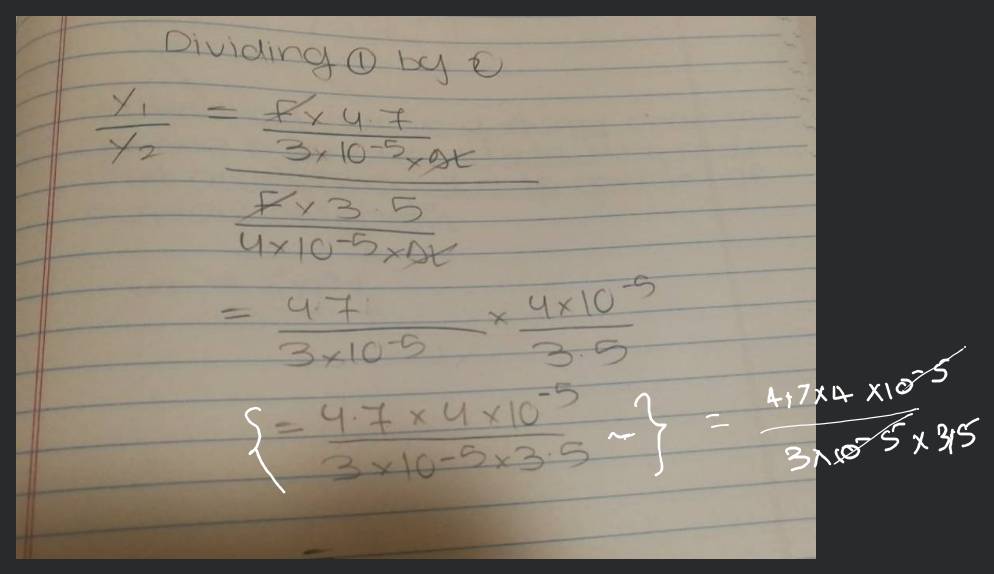 Dividing ① by ②
Y₁/Y₂ = (F × 4.7)/(3 × 10⁻⁵ × Δt)
(F × 3.5)/(4 × 10⁻⁵ × Δt)
= 4.7/(3 × 10⁻⁵) × (4 × 10⁻⁵)/3.5
{ = (4.7 × 4 × 10⁻⁵)/(3 × 10⁻⁵ × 3.5) ~ } = (4,7 × 4 × 10⁻⁵)/(3 × 10⁻⁵ × 3,5)